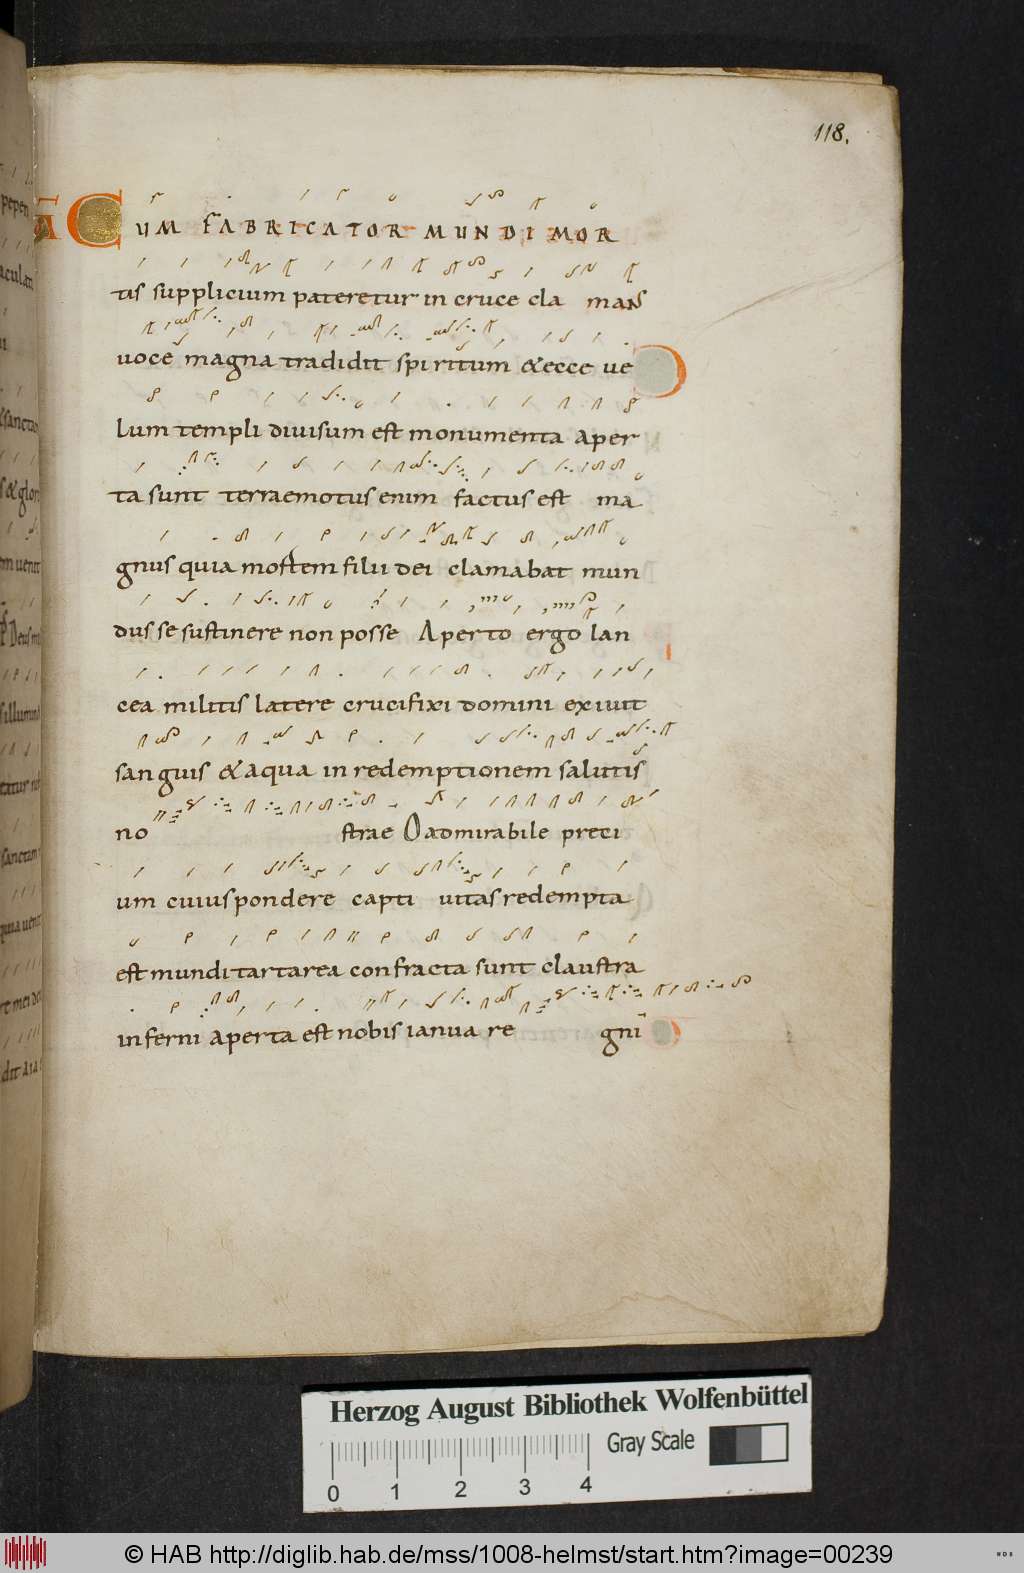 118.
Ā CUM FABRICATOR MUNDI MOR
tis supplicium pateretur in cruce cla mans
voce magna tradidit spiritum & ecce ve
lum templi divisum est monumenta aper
ta sunt terraemotus enim factus est ma
gnus quia mortem filii dei clamabat mun
dus se sustinere non posse Aperto ergo lan
cea militis latere crucifixi domini exivit
sanguis & aqua in redemptionem salutis
no strae O admirabile preci
um cuius pondere capti vitas redempta
est mundi tartarea confracta sunt claustra
inferni aperta est nobis ianua re gni
Herzog August Bibliothek Wolfenbüttel
Gray Scale
0 1 2 3 4
© HAB http://diglib.hab.de/mss/1008-helmst/start.htm?image=00239